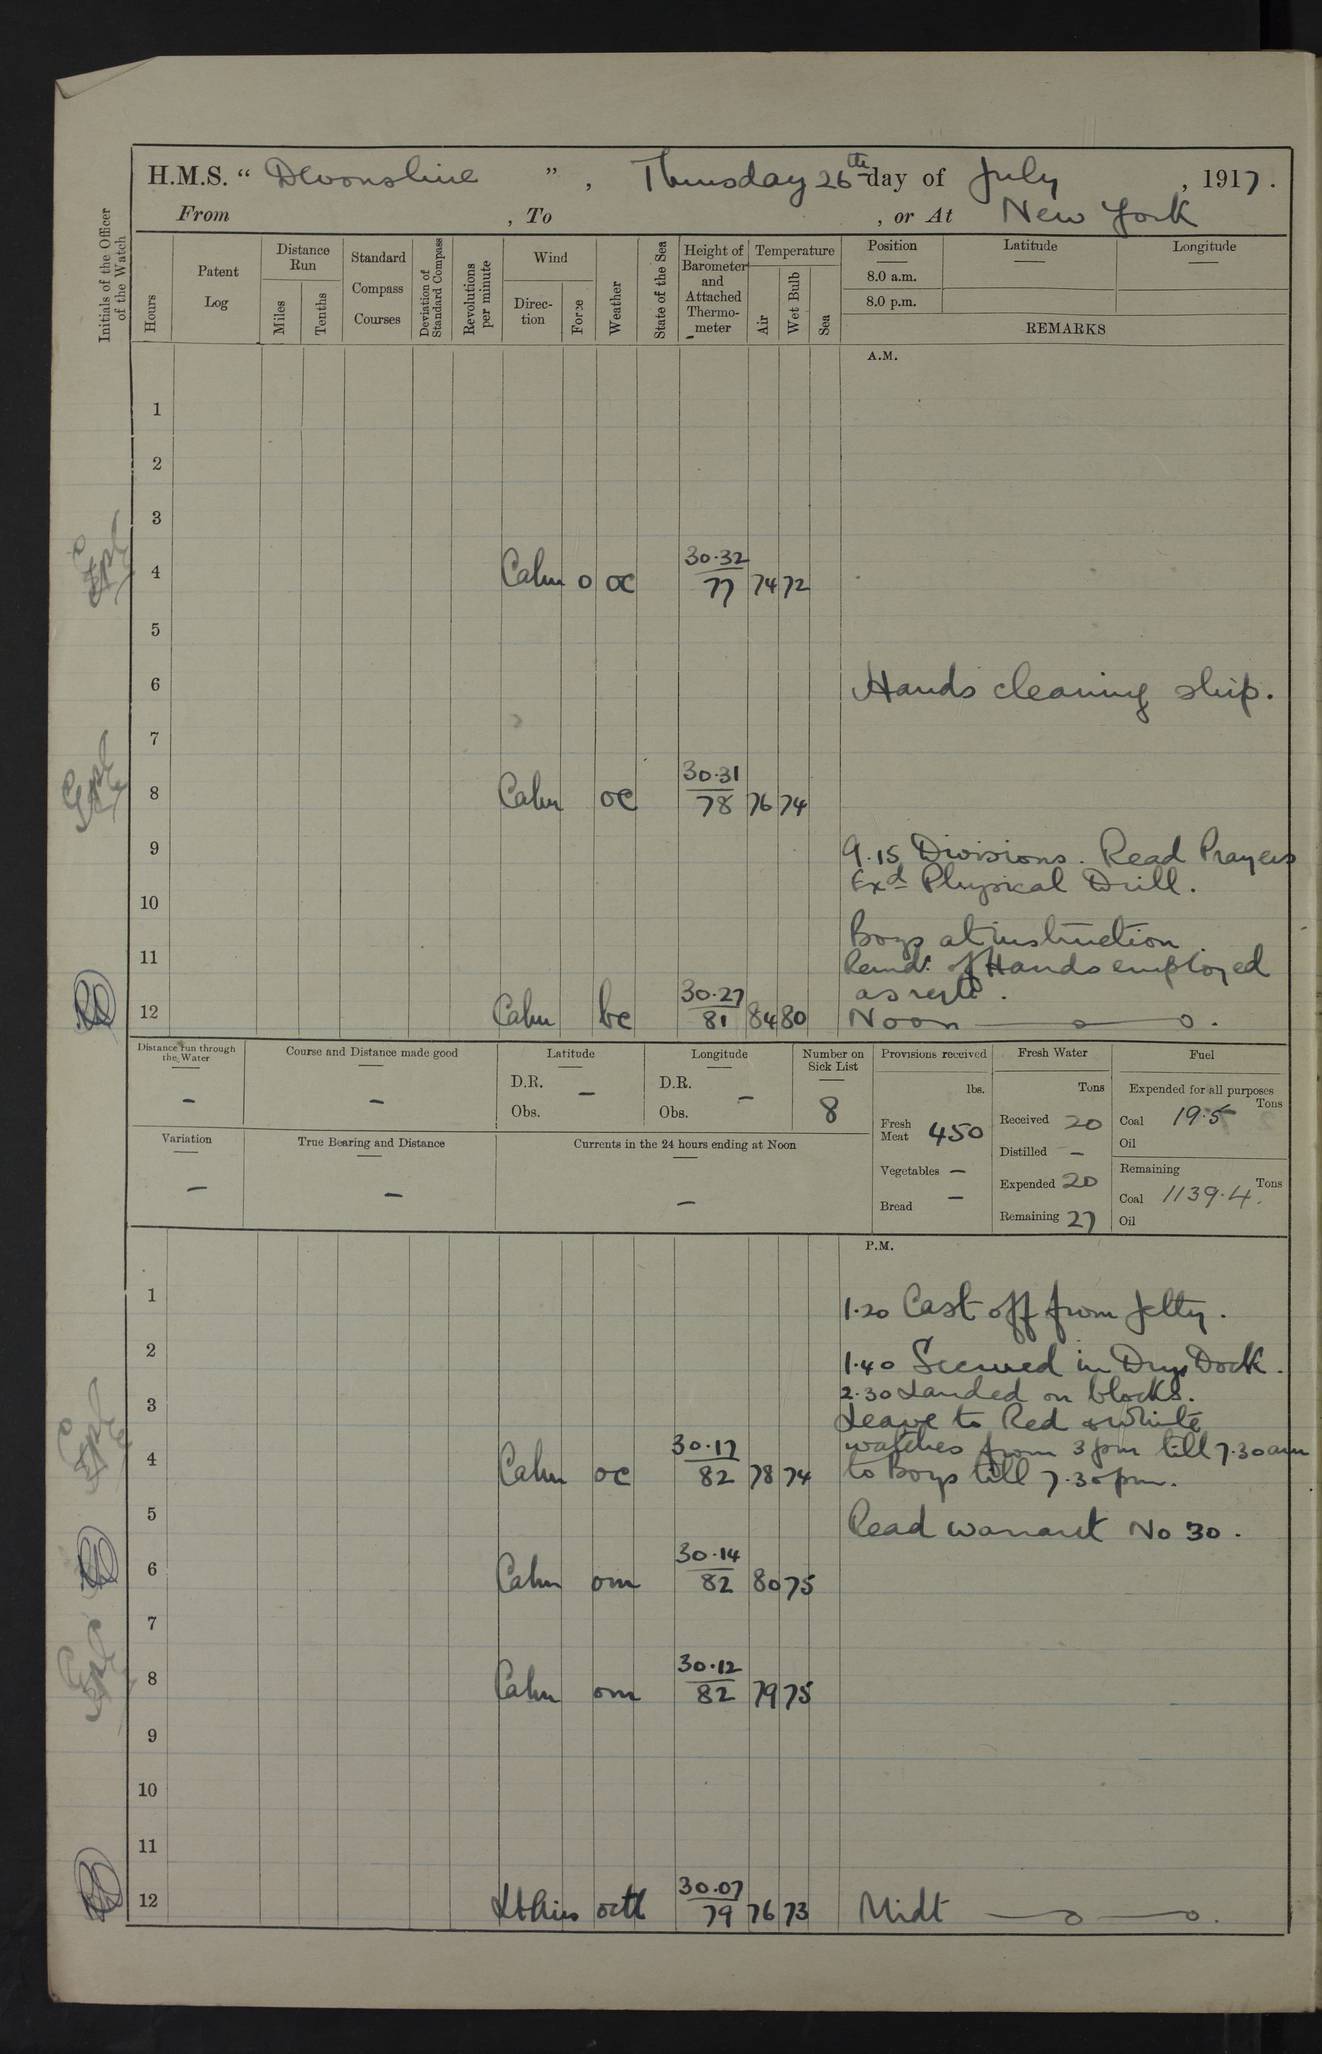 H.M.S. “ Devonshire ” , Thursday 26th day of July , 1917 .
From , To , or At New York
Initials of the Officer of the Watch
Hours
Patent Log
Distance Run
Miles
Tenths
Standard Compass Courses
Deviation of Standard Compass
Revolutions per minute
Wind
Direc-tion
Force
Weather
State of the Sea
Height of Barometer and Attached Thermo-meter
Temperature
Air
Wet Bulb
Sea
Position Latitude Longitude
8.0 a.m.
8.0 p.m.
REMARKS
A.M.
1
2
3
4 Calm 0 oc 30.32 77 74 72
5
6 Hands cleaning ship.
7
8 Calm oc 30.31 78 76 74
9 9.15 Divisions. Read Prayers
Exd Physical Drill.
10
Boys at instruction.
11 Remdr. of Hands employed
as reqte.
12 Calm bc 30.27 81 84 80 Noon
Distance run through the Water
-
Course and Distance made good
-
Latitude
D.R. -
Obs.
Longitude
D.R. -
Obs.
Number on Sick List
8
Provisions received
lbs.
Fresh Meat 450
Vegetables -
Bread -
Fresh Water
Tons
Received 20
Distilled -
Expended 20
Remaining 27
Fuel
Expended for all purposes
Tons
Coal 19.5
Oil
Remaining
Tons
Coal 1139.4.
Oil
Variation
-
True Bearing and Distance
-
Currents in the 24 hours ending at Noon
-
P.M.
1 1.20 Cast off from jetty.
2 1.40 Secured in Dry Dock.
2.30 Landed on blocks.
3 Leave to Red & White
watches from 3pm till 7.30am
4 Calm oc 30.17 82 78 74 to Boys till 7.30pm.
5 Read warrant No 30.
6 Calm om 30.14 82 80 75
7
8 Calm om 30.12 82 79 75
9
10
11
12 Lt Airs octl 30.07 79 76 73 Midt